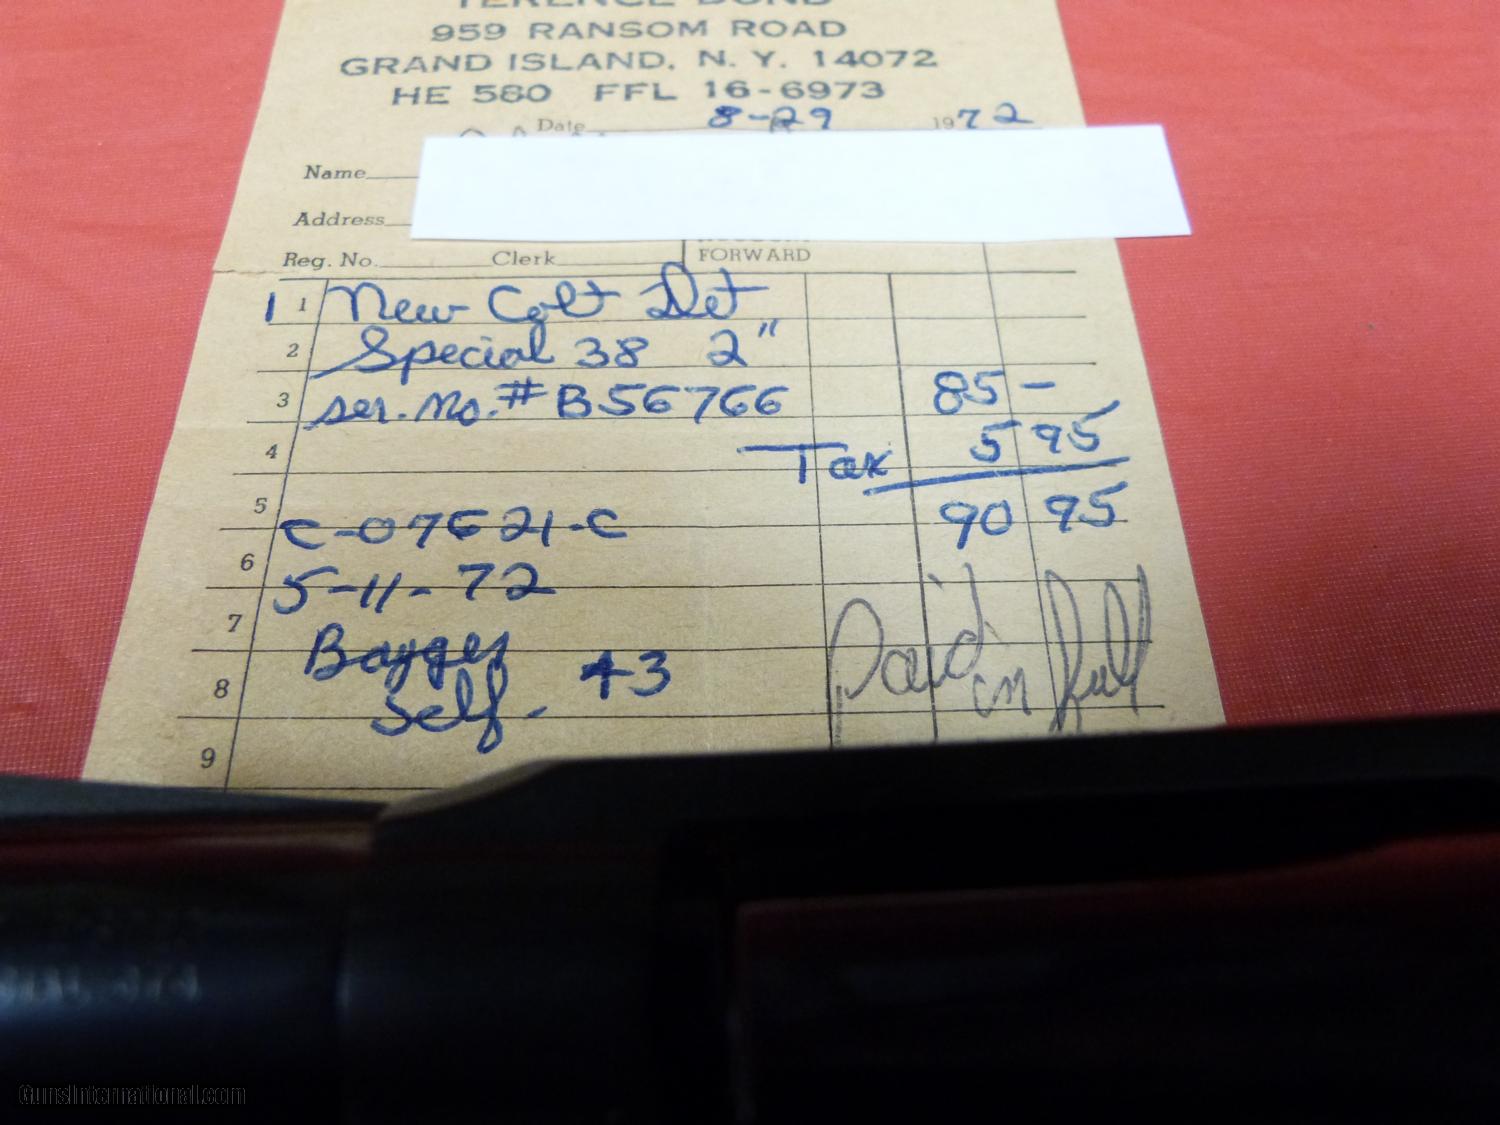 TERENCE BOND
959 RANSOM ROAD
GRAND ISLAND, N. Y. 14072
HE 580 FFL 16-6973
Date 8-29 1972
Name
Address
Reg. No. Clerk FORWARD
1 1 New Colt Det
2 Special 38 2"
3 ser. no. # B56766 85 -
4 Tax 5 95
5 90 95
C-07621-C
6
5-11-72
7
8 Self - 43
Paid in full
9
GunsInternational.com